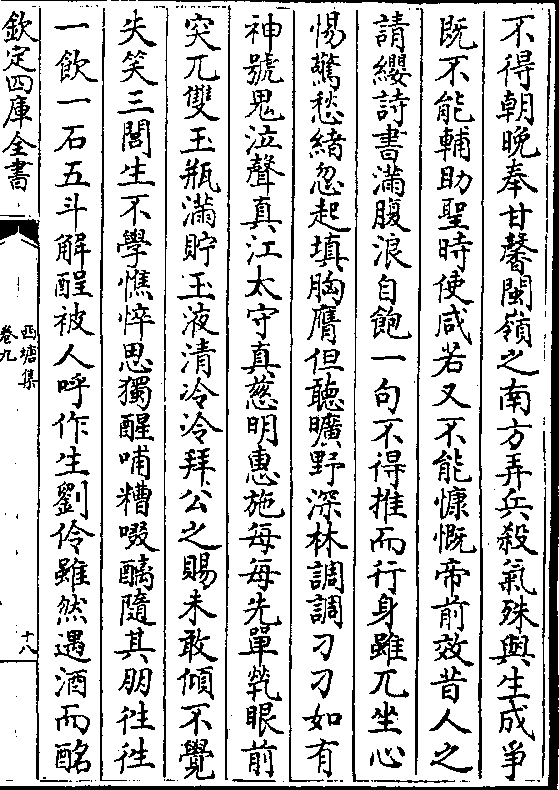 不得朝晚奉甘馨閩嶺之南方弄兵殺氣殊與生成爭
既不能輔助聖時使咸若又不能慷慨帝前效昔人之
請纓詩書滿腹浪自飽一句不得推而行身雖兀坐心
惕驚愁緒忽起填胸膺但聽曠野深林調調刁刁如有
神號鬼泣聲真江太守真慈明惠施每每先單煢眼前
突兀雙玉瓶滿貯玉液清冷冷拜公之賜未敢傾不覺
失笑三閭生不學憔悴思獨醒哺糟啜醨隨其朋往往
一飲一石五斗解酲被人呼作生劉伶雖然遇酒而酩
欽定四庫全書
西塘集
卷九
十八